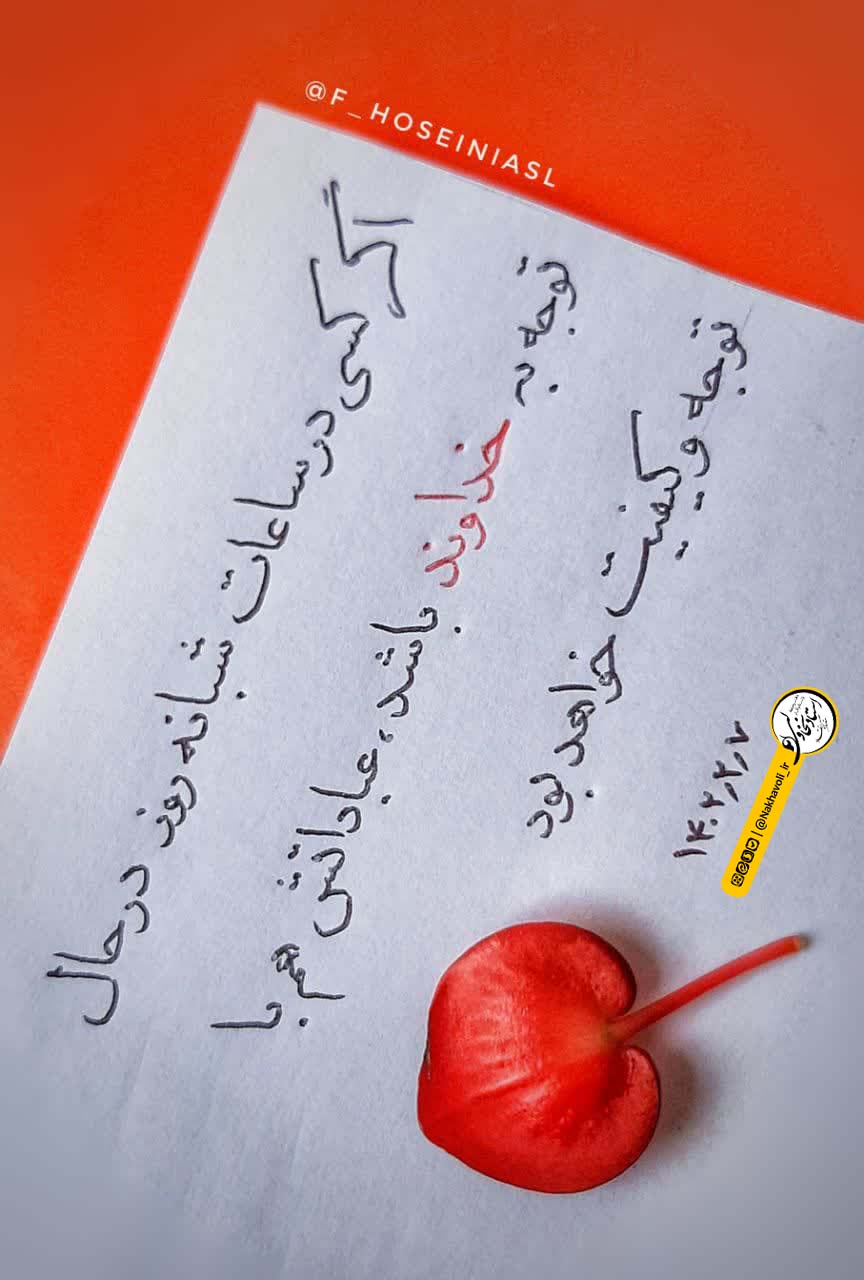 @F_HOSEINIASL
اگر کسی در ساعات شبانه روز در حال
توجه به خداوند باشد، عباداتش هم با
توجه و کیفیت خواهد بود
۱۴۰۲٫۲٫۷
@Nakhavoli_ir